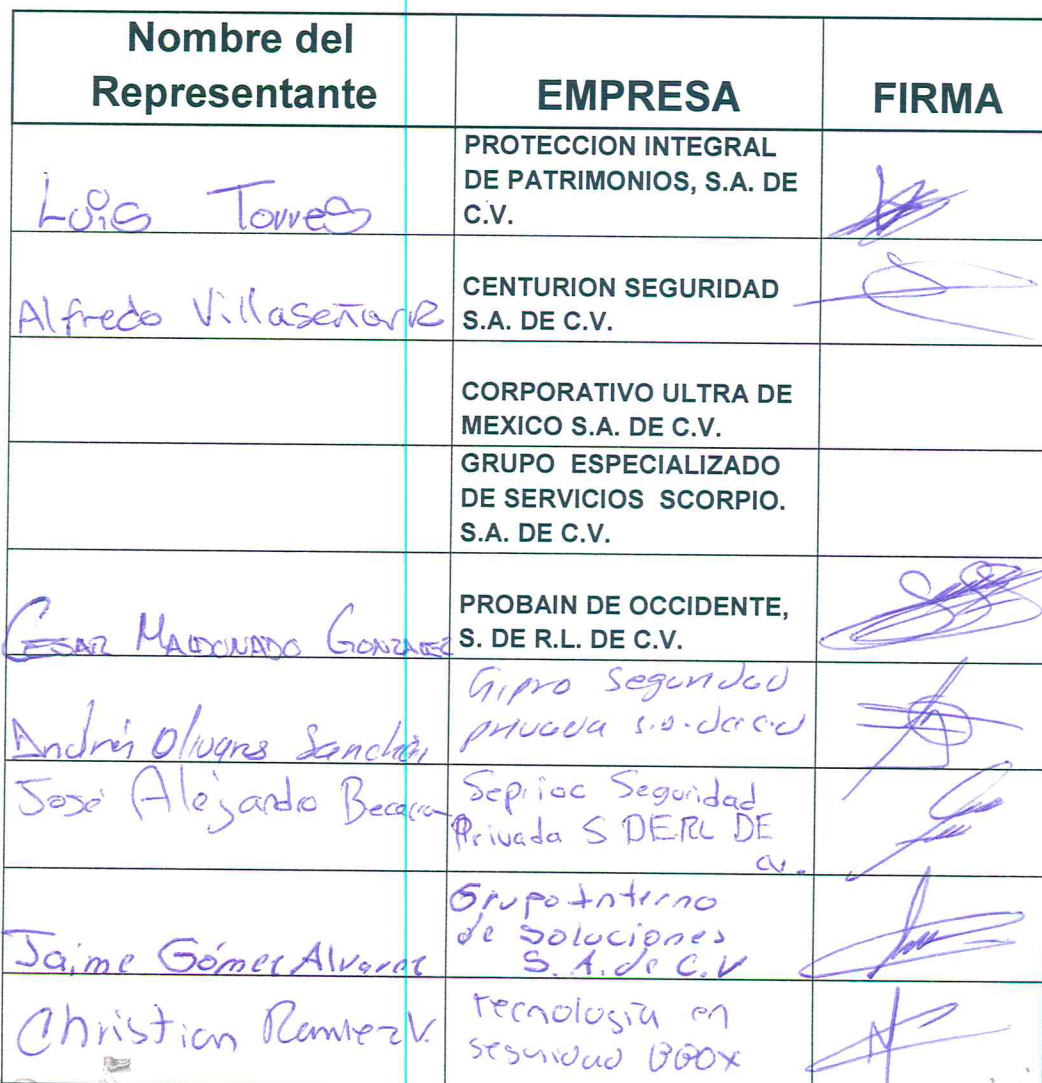 Nombre del
Representante
EMPRESA
FIRMA
Luis Torres
PROTECCION INTEGRAL
DE PATRIMONIOS, S.A. DE
C.V.
Alfredo Villaseñor R
CENTURION SEGURIDAD
S.A. DE C.V.
CORPORATIVO ULTRA DE
MEXICO S.A. DE C.V.
GRUPO ESPECIALIZADO
DE SERVICIOS SCORPIO.
S.A. DE C.V.
CESAR MALDONADO GONZALEZ
PROBAIN DE OCCIDENTE,
S. DE R.L. DE C.V.
Andrés Olivares Sanchez
Gipro Seguridad
privada s.a. de c.v
José Alejandro Becerra
Seprioc Seguridad
Privada S DE RL DE
CV.
Jaime Gómez Alvarez
Grupo Interno
de Soluciones
S. A. de C. V
Christian Ramirez V.
tecnología en
seguridad